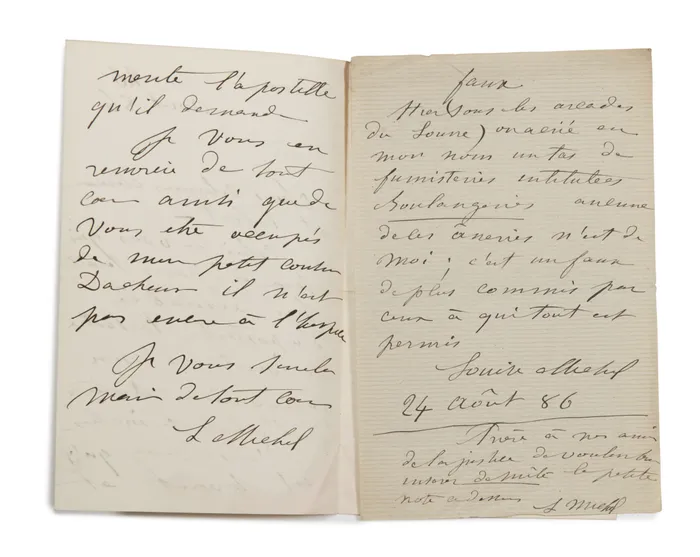 mérite l'apostille
qu'il demande
Je vous en
remercie de tout
cœur ainsi que de
vous être occupés
de mon petit cousin
Dacheux il n'est
pas encore à l'hospice
Je vous serre la
main de tout cœur
L Michel
faux
Hier sous les arcades
du Louvre) on a crié en
mon nom un tas de
fumisteries intitulées
Boulangeries aucune
de ces âneries n'est de
moi ; c'est un faux
de plus commis par
ceux à qui tout est
permis
Louise Michel
24 Août 86
Prière à nos amis
de la justice de vouloir bien
insérer de suite la petite
note ci dessus
L Michel